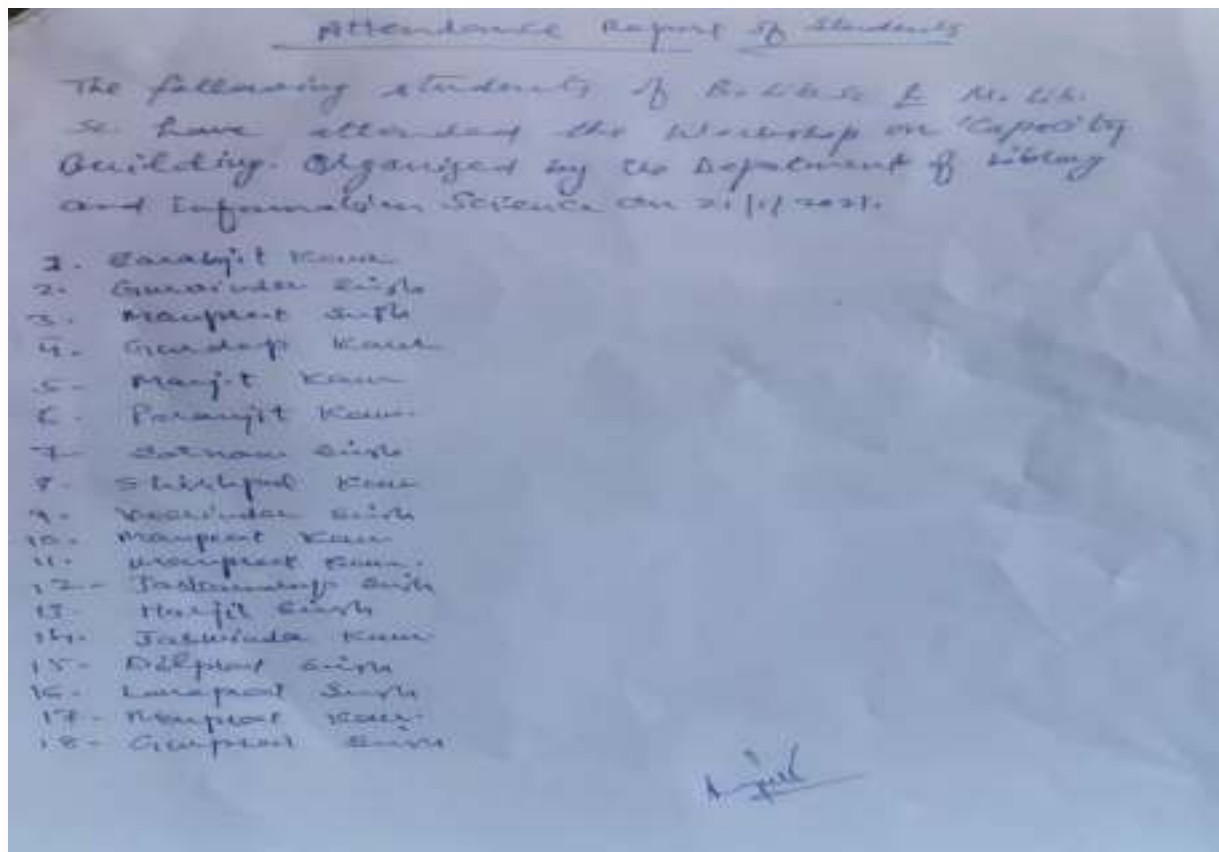 Attendance Report of Students
The following students of B. Lib. Sc & M. Lib.
Sc. have attended the Workshop on 'Capacity
Building. Organized by the Department of Library
and Information Science on 21/1/2021.
1. Sarabjit Kaur
2. Gurwinder Singh
3. Manpreet Singh
4. Gurdeep Kaur
5- Manjit Kaur
6. Paramjit Kaur
7- Satnam Singh
8- Kaur
9. Singh
10. Manpreet Kaur
11. Manpreet Kaur.
12- Singh
13. Harjit Singh
14. Jaswinder Kaur
15- Dilpreet Singh
16- Singh
17- Manpreet Kaur
18- Gurpreet Singh